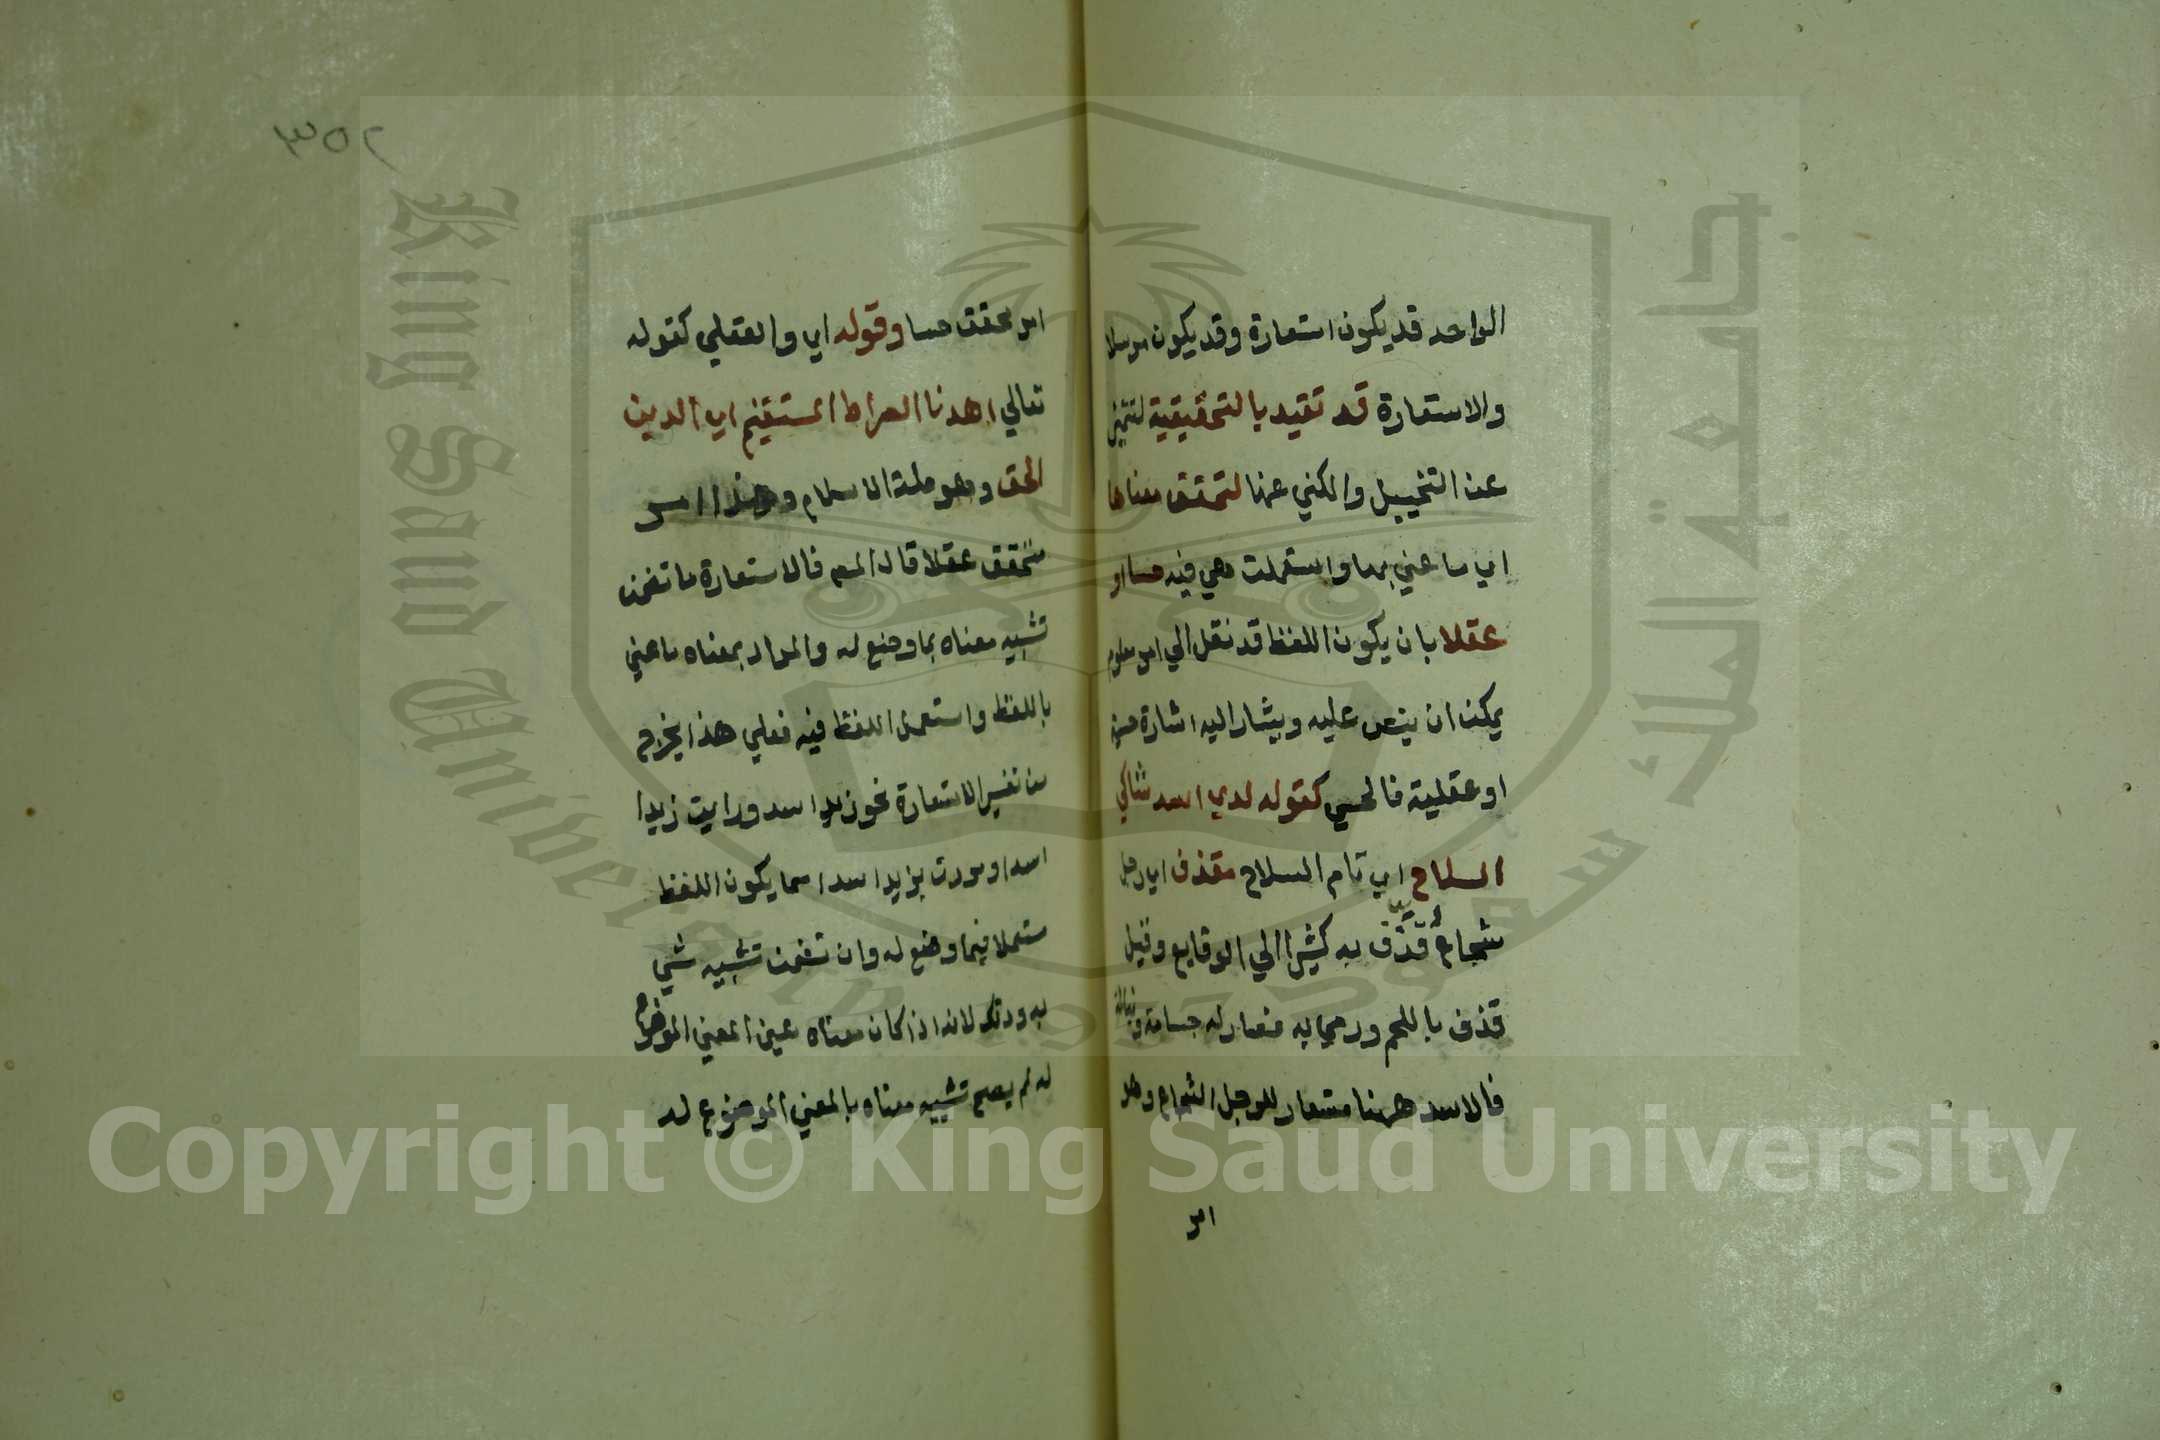 الواحد قد يكون استعارة وقد يكون مرسلا
والاستعارة قد تقيد بالتحقيقية لتتميز
عن التخييل والمكني عنها لتحقق معناها
اي ما عني بها واستعملت هي فيه حسا او
عقلا بان يكون اللفظ قد نقل الي امر معلوم
يمكن ان ينص عليه ويشار اليه اشارة حسية
او عقلية فالحسي كقوله لدي اسد شاكي
السلاح اي تام السلاح مقذف اي رجل
شجاع قذف به كثيرا الي الوقايع وقيل
قذف باللحم ورمي به فصار له جسامة ونبالة
فالاسد ههنا مستعار للرجل الشجاع وهو
امر
٣٥٢
امر محقق حسا وقوله اي والعقلي كقوله
تعالي اهدنا الصراط المستقيم اي الدين
الحق وهو ملة الاسلام وهذا امر
متحقق عقلا قال المص فالاستعارة ما تضمن
تشبيه معناه بما وضع له والمراد بمعناه ما عني
باللفظ واستعمل اللفظ فيه فعلي هذا يخرج
من تفسير الاستعارة نحو زيد اسد ورايت زيدا
اسدا ومررت بزيد اسد مما يكون اللفظ
مستعملا فيما وضع له وان تضمن تشبيه شي
به وذلك لانه اذا كان معناه عين المعني الموضوع
له لم يصح تشبيه معناه بالمعني الموضوع له
King Saud University
جامعة الملك سعود
Copyright © King Saud University